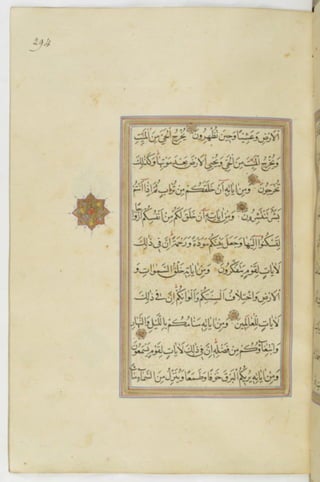 294
الارض وعشيا وحين تظهرون يخرج الحي من الميت
ويخرج الميت من الحي ويحيي الارض بعد موتها وكذلك
تخرجون ومن اياته ان خلقكم من تراب ثم اذا انتم
بشر تنتشرون ومن اياته ان خلق لكم من انفسكم ازواجا
لتسكنوا اليها وجعل بينكم مودة ورحمة ان في ذلك
لايات لقوم يتفكرون ومن اياته خلق السموات و
الارض واختلاف السنتكم والوانكم ان في ذلك
لايات للعالمين ومن اياته منامكم بالليل والنهار
وابتغاؤكم من فضله ان في ذلك لايات لقوم يسمعون
ومن اياته يريكم البرق خوفا وطمعا وينزل من السماء ماء